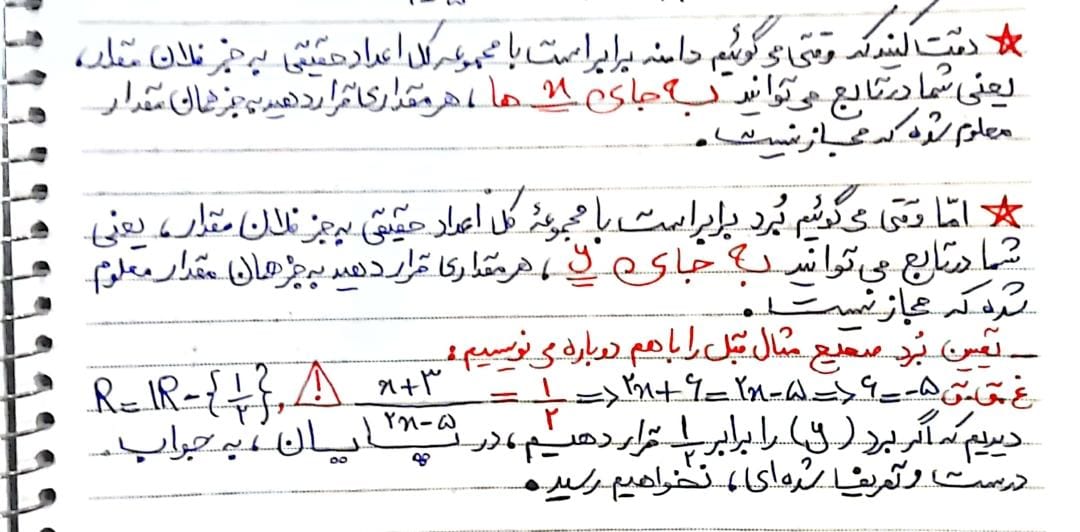 ☆ دقت کنید که وقتی می‌گوئیم دامنه برابر است با مجموعه کل اعداد حقیقی به جز فلان مقدار،
یعنی شما در تابع می‌توانید به جای x ها، هر مقداری قرار دهید به جز همان مقدار
معلوم شده که مجاز نیست.
☆ امّا وقتی می‌گوئیم بُرد برابر است با مجموعهٔ کل اعداد حقیقی به جز فلان مقدار، یعنی
شما در تابع می‌توانید به جای y، هر مقداری قرار دهید به جز همان مقدار معلوم
شده که مجاز نیست.
ـ تعیین بُرد صحیح مثال قبل را با هم دوباره می‌نویسیم:
R = ℝ - {۱/۲}, ⚠ (x+۳)/(۲x-۵) = ۱/۲ => ۲x+۶ = ۲x-۵ => ۶ = -۵ غ.ق.ق
دیدیم که اگر برد (y) را برابر ۱/۲ قرار دهیم، در پایان، به جواب
درست و تعریف شده‌ای، نخواهیم رسید.